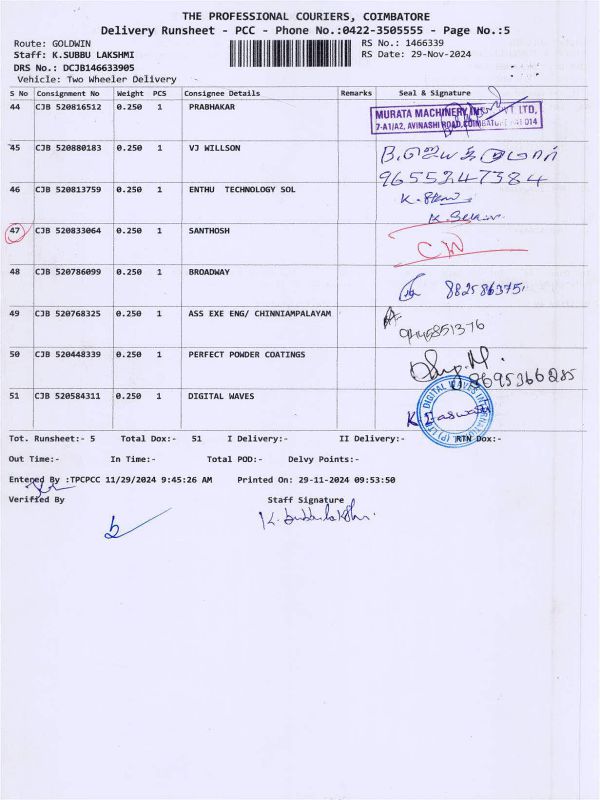 THE PROFESSIONAL COURIERS, COIMBATORE
Delivery Runsheet - PCC - Phone No.:0422-3505555 - Page No.:5
Route: GOLDWIN
RS No.: 1466339
Staff: K.SUBBU LAKSHMI
RS Date: 29-Nov-2024
DRS No.: DCJB146633905
Vehicle: Two Wheeler Delivery
S No Consignment No Weight PCS Consignee Details Remarks Seal & Signature
44 CJB 520816512 0.250 1 PRABHAKAR
MURATA MACHINERY PVT LTD,
7-A1/A2, AVINASHI ROAD, COIMBATORE 014
45 CJB 520880183 0.250 1 VJ WILLSON
9655247384
46 CJB 520813759 0.250 1 ENTHU TECHNOLOGY SOL
47 CJB 520833064 0.250 1 SANTHOSH
48 CJB 520786099 0.250 1 BROADWAY
8825863751
49 CJB 520768325 0.250 1 ASS EXE ENG/ CHINNIAMPALAYAM
50 CJB 520448339 0.250 1 PERFECT POWDER COATINGS
8695366285
51 CJB 520584311 0.250 1 DIGITAL WAVES
DIGITAL WAVES INTERNATIONAL (P) LTD
K. Easwari
Tot. Runsheet:- 5 Total Dox:- 51 I Delivery:- II Delivery:- RTN Dox:-
Out Time:- In Time:- Total POD:- Delvy Points:-
Entened By :TPCPCC 11/29/2024 9:45:26 AM Printed On: 29-11-2024 09:53:50
Verified By Staff Signature
K. Subbulakshmi